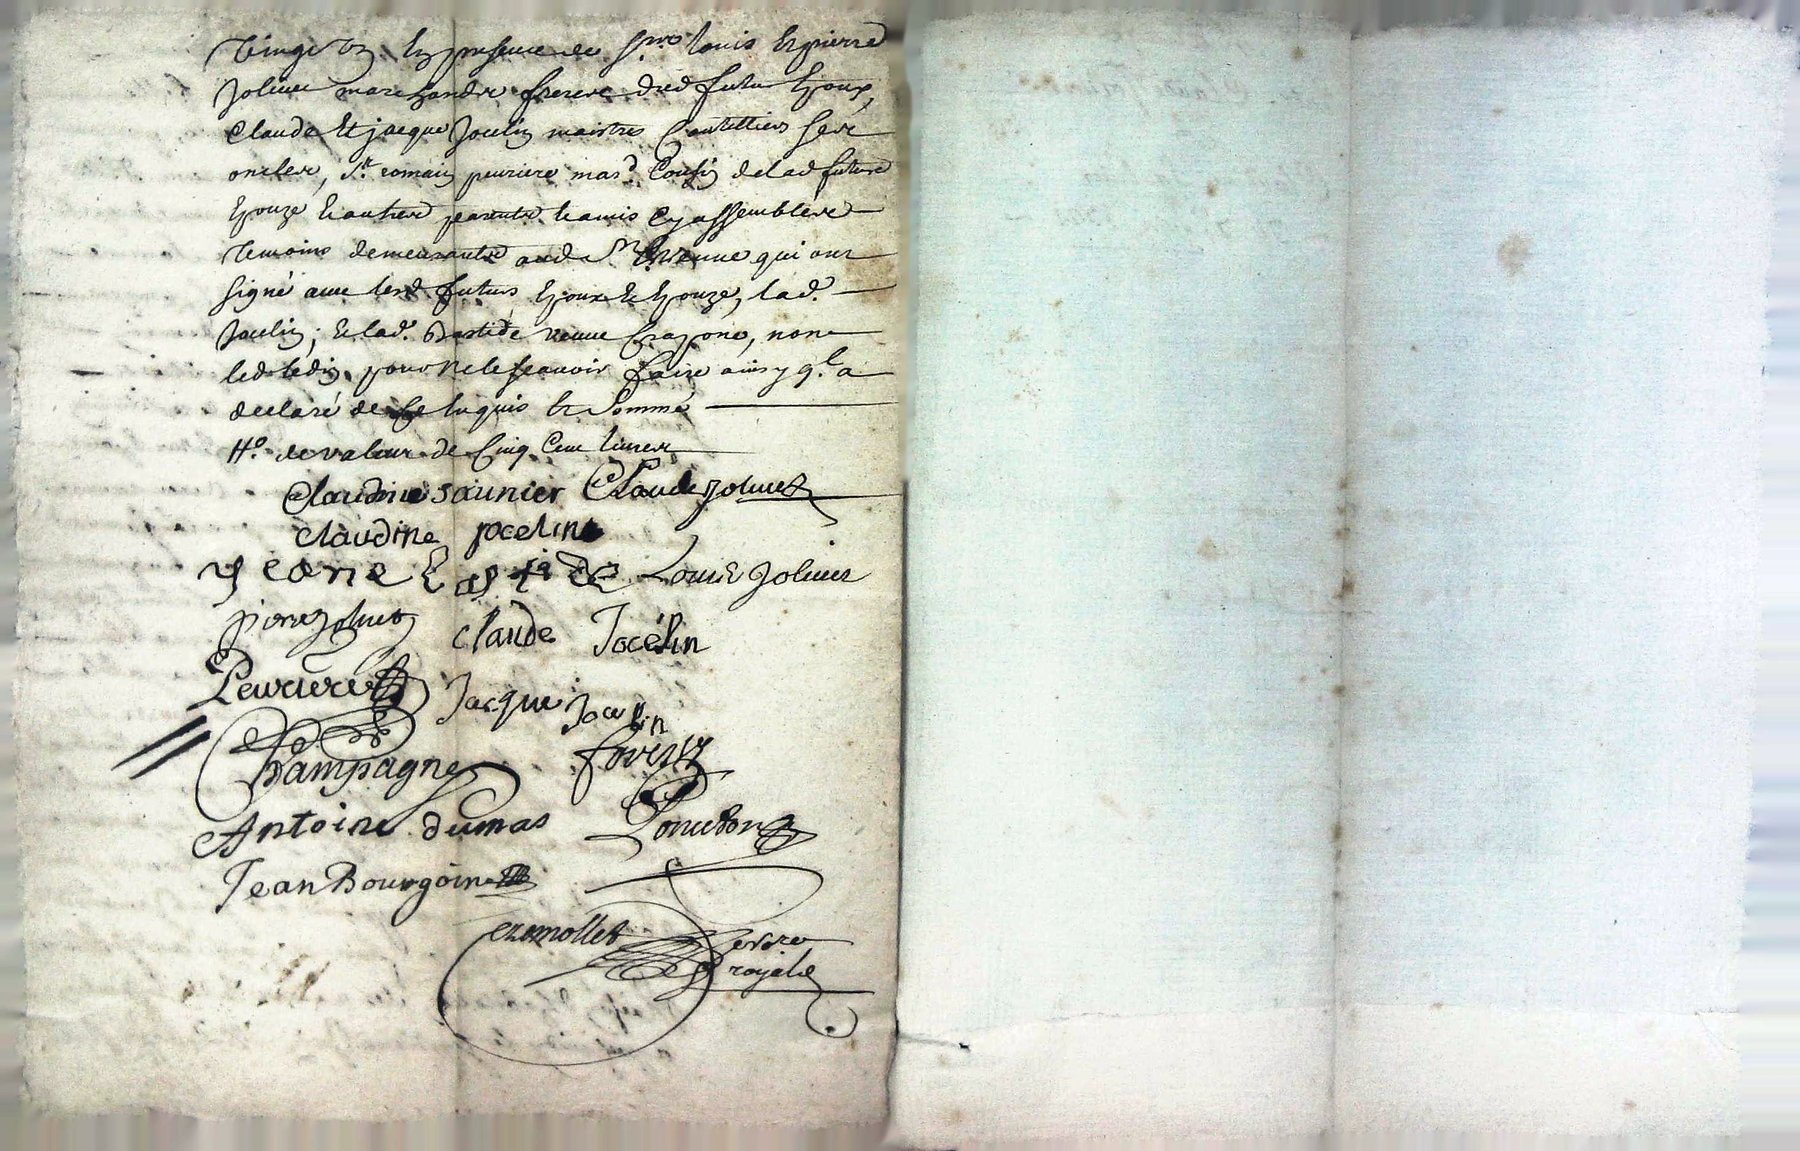 vingt un En presence de Srs louis Et pierre
Joliuet marchandz freres dud futur Epoux,
Claude Et jacque Jocelin maistres Coutelliers ses
oncles, Sr. romain peuriere mard. Cousin de lad future
Epouze & autres parentz & amis Cy assemblés
temoins demeurantz aud St Etienne qui ont
signé auec lesd futurs Epoux & Epouze, lad.
Jocelin, & lad. Bastide veuue Crapone, non
led pour ne le scauoir faire ainsy ql a
declaré de ce Enquis Et Sommé
Ho. de valeur de Cinq Cent liures
Claudine saunier Claude Joliuet
claudine jocelin
jeane bastide Louis Joliuet
pierre Joliuet claude Jocélin
Peuriere Jacque Jocelin
Champagne
Antoine dumas
Jean Bourgoin
ezemollet
royal